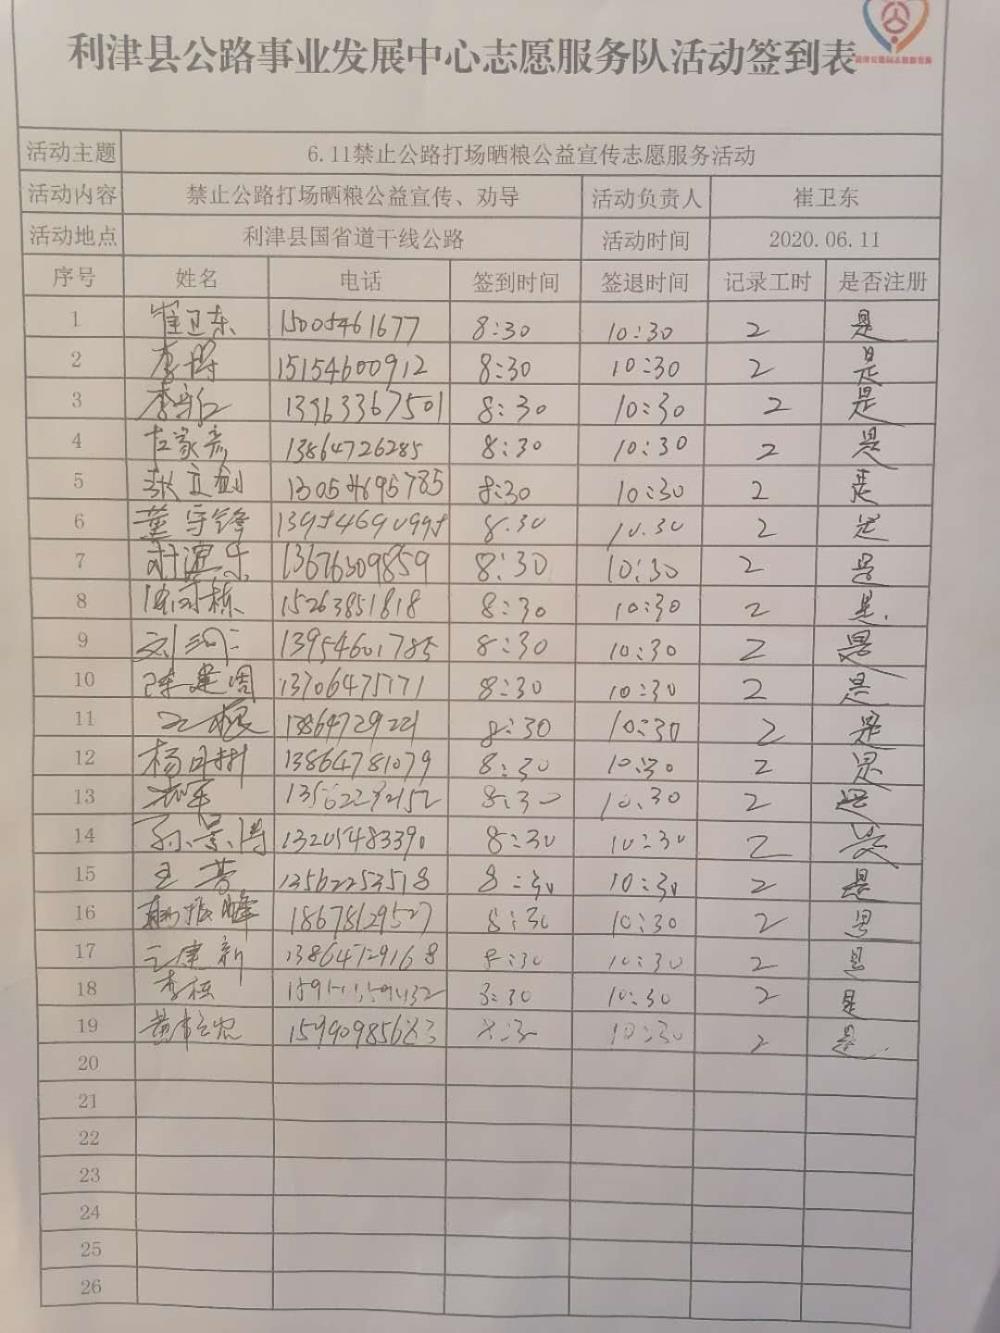 利津县公路事业发展中心志愿服务队活动签到表
活动主题 6.11禁止公路打场晒粮公益宣传志愿服务活动
活动内容 禁止公路打场晒粮公益宣传、劝导 活动负责人 崔卫东
活动地点 利津县国省道干线公路 活动时间 2020.06.11
序号 姓名 电话 签到时间 签退时间 记录工时 是否注册
1 崔卫东 15005461677 8:30 10:30 2 是
2 15154600912 8:30 10:30 2 是
3 李守仁 13963367501 8:30 10:30 2 是
4 左家亮 13864726285 8:30 10:30 2 是
5 张立剑 8:30 10:30 2 是
6 董守锋 8.30 10.30 2 是
7 13676309859 8:30 10:30 2 是
8 15263851818 8:30 10:30 2 是.
9 13954601785 8:30 10:30 2 是
10 陈建周 13706475771 8:30 10:30 2 是
11 8:30 10:30 2 是
12 杨日树 13864781079 8:30 10:30 2 是
13 8:30 10.30 2 是
14 孙景博 13205483390 8:30 10:30 2 是
15 王芳 13562253518 8:30 10:30 2 是
16 18678129527 8:30 10:30 2 是
17 王建新 13864729168 8:30 10:30 2 是
18 10:30 2 是
19 10:30 2 是.
20
21
22
23
24
25
26